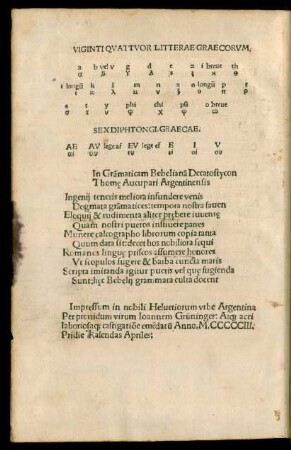 VIGINTI QVATTVOR LITTERAE GRAECORVM.
a b vel v g d e z i breue th
α β γ δ ε ζ η θ
i longū k l m n x o longū p
ι κ λ μ ν ξ ο π
s t y phi chi psi o breue
σ τ υ φ χ ψ ω
SEX DIPHTONGI GRAECAE.
AE AV lege af EV lege ef E I V
αι αυ ευ ει οι ου
In Grāmaticam Bebelianā Decatostycon
Thomę Aucupari Argentinensis
Ingenij teneris meliora infundere venis
Dogmata grāmatices: tempora nostra fauen
Eloquij & rudimenta aliter prębere iuuentę
Quam nostri pueros insinuere patres
Munere calcographo librorum copia tanta
Quum data sit: decet hos nobiliora sequi
Romanos linguę priscos assumere honores
Vt scopulos fugere & barba cuncta maris
Scripta imitanda igitur pueris vel quę fugienda
Sunt: hęc Bebelij grammata culta docent
Impressum in nobili Heluetiorum vrbe Argentina
Per prouidum virum Ioannem Grüninger: Atq; acri
laboriosaq; castigatiōe emēdatū Anno. M.CCCCCIII.
Pridie Kalendas Apriles: